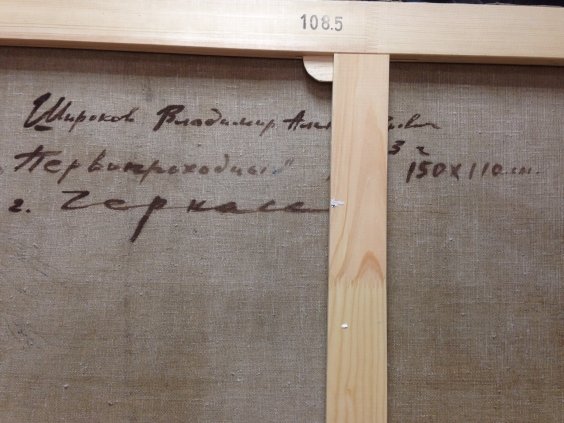 108.5
Широков Владимир
"Первопроходцы" 150х110см.
г. Черкассы